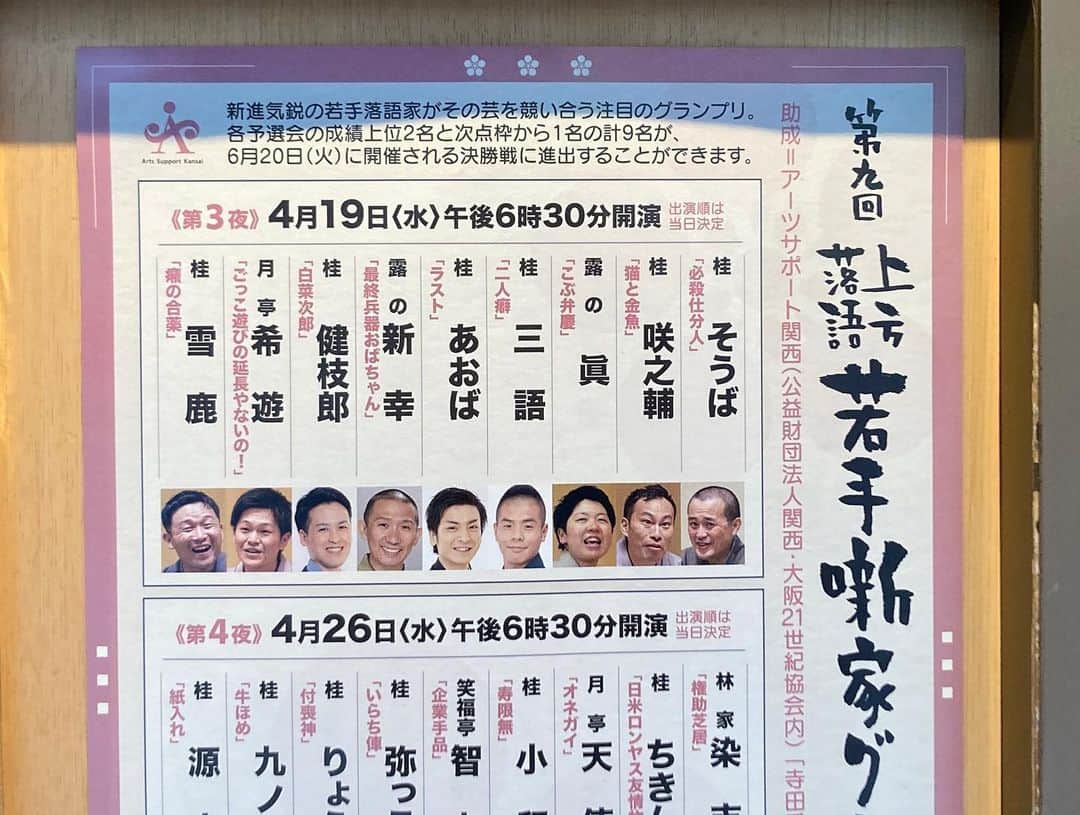 第九回
上方落語若手噺家グ
助成＝アーツサポート関西（公益財団法人関西・大阪21世紀協会内）「寺田
Arts Support Kansai
新進気鋭の若手落語家がその芸を競い合う注目のグランプリ。
各予選会の成績上位2名と次点枠から1名の計9名が、
6月20日（火）に開催される決勝戦に進出することができます。
《第3夜》4月19日〈水〉午後6時30分開演
出演順は
当日決定
桂 そうば
「必殺仕分人」
桂 咲之輔
「猫と金魚」
露の 眞
「こぶ弁慶」
桂 三語
「二人癖」
桂 あおば
「ラスト」
露の 新幸
「最終兵器おばちゃん」
桂 健枝郎
「白菜次郎」
月亭 希遊
「ごっこ遊びの延長やないの！」
桂 雪鹿
「癪の合薬」
《第4夜》4月26日〈水〉午後6時30分開演
出演順は
当日決定
林家 染
「権助芝居」
桂 ちきん
「日米ロンヤス友情
月亭 天
「オネガイ」
桂 小
「寿限無」
笑福亭 智
「企業手品」
桂 弥っ
「いらち俥」
桂 りょう
「付喪神」
桂 九ノ
「牛ほめ」
桂 源
「紙入れ」